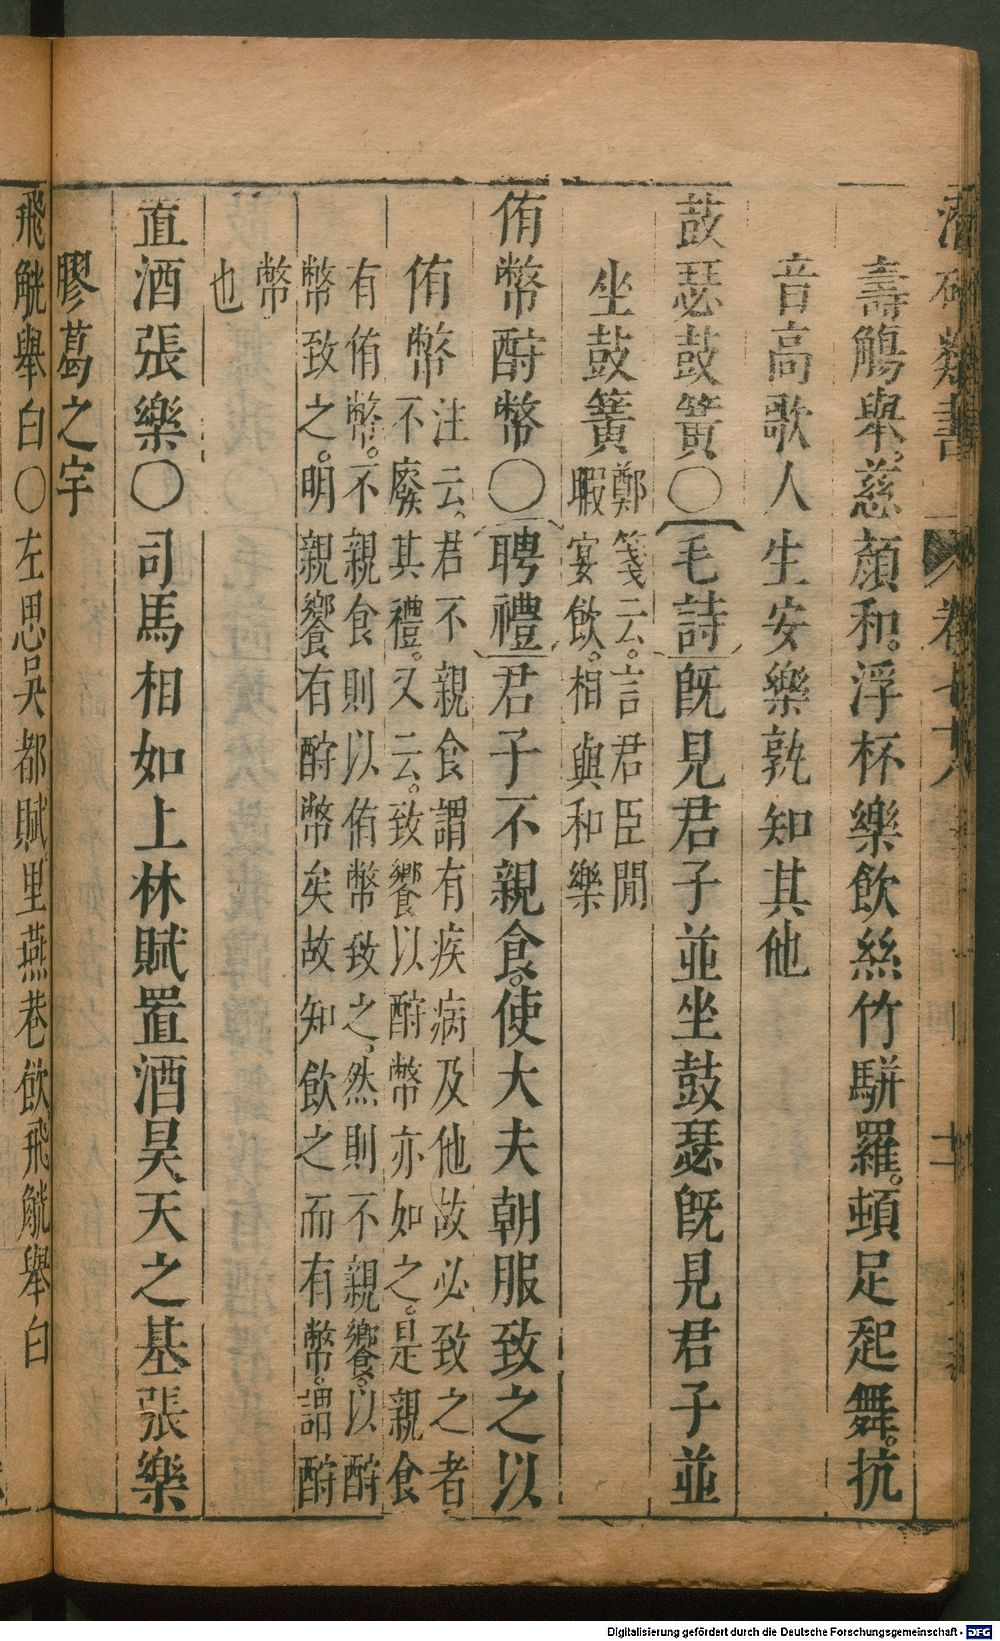 潛確類書 卷七十八
壽觴舉。慈顏和。浮杯樂飲絲竹駢羅。頓足起舞。抗
音高歌人生安樂孰知其他
鼓瑟鼓簧○毛詩旣見君子並坐鼓瑟旣見君子並
坐鼓簧
鄭箋云。言君臣閒
暇宴飲。相與和樂
侑幣酧幣○聘禮君子不親食。使大夫朝服致之以
侑幣
注云。君不親食謂有疾病及他故必致之者
不廢其禮。又云。致饗以酧幣亦如之。是親食
有侑幣。不親食則以侑幣致之。然則不親饗。以酧
幣致之。明親饗有酧幣矣故知飲之而有幣。謂酧
幣。
也
置酒張樂○司馬相如上林賦置酒昊天之基張樂
膠葛之宇
飛觥舉白○左思吳都賦。里燕巷飲飛觥舉白
Digitalisierung gefördert durch die Deutsche Forschungsgemeinschaft - DFG